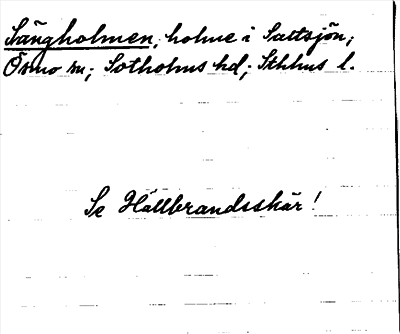 Långholmen, holme i Saltsjön;
Ösmo sn; Sotholms hd; Sthlms l.
Se Hällbrandsskär!